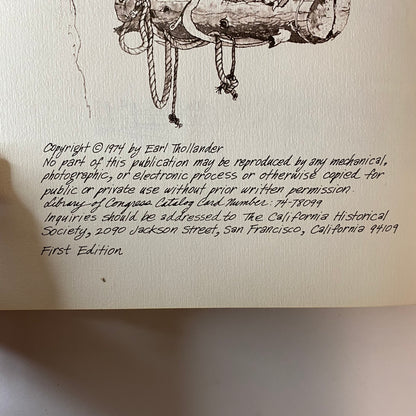 Copyright © 1974 by Earl Thollander
No part of this publication may be reproduced by any mechanical,
photographic, or electronic process or otherwise copied for
public or private use without prior written permission.
Library of Congress Catalog Card Number: 74-78099
Inquiries should be addressed to The California Historical
Society, 2090 Jackson Street, San Francisco, California 94109
First Edition